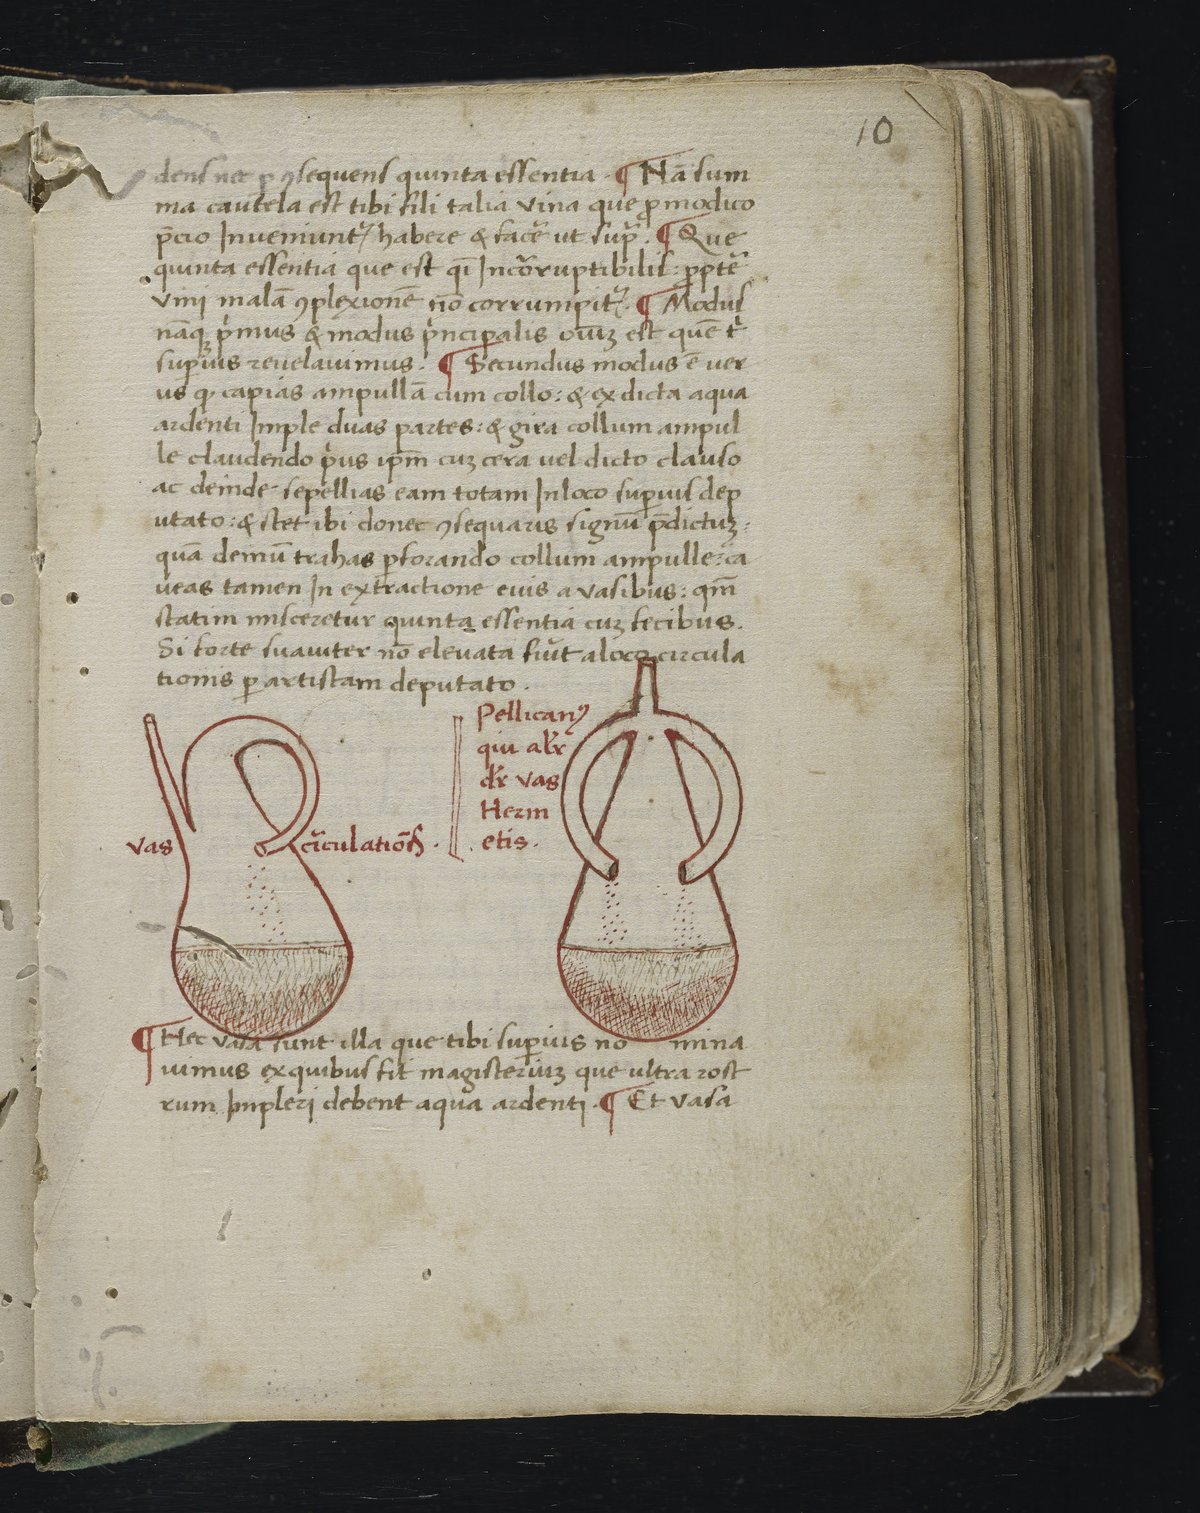 10
dens nec p ꝯsequens quinta essentia. ¶ Nā sum
ma cautela est tibi fili talia vina que ꝓ modico
p̄cio Inveniuntꝰ habere & facē ut sup̄. ¶ Que
quinta essentia que est qī Incōrruptibilis: ꝓptē
vini malā ꝯplexionē nō corrumpitꝰ. ¶ Modus
nāqꝫ p̄mus & modus p̄ncipalis oīuꝫ est quē t̄
superius revelavimus. ¶ Secundus modus ē ver
us qꝫ capias ampullā cum collo: & ex dicta aqua
ardenti Imple duas partes: & gira collum ampul
le claudendo p̄us ip̄m cuꝫ cera vel dicto clauso
ac deinde sepellias eam totam In loco suꝑius dep
utato: & stet ibi donec ꝯsequaris signū p̄dictuꝫ:
quā demū trahas ꝑforando collum ampulle: ca
veas tamen In extractione euis a vasibus: qm̄
statim misceretur quinta essentia cuꝫ fecibus.
Si forte suaviter nō elevata fuīt a loco circula
tionis ꝑ artistam deputato.
Pellicanꝰ
qui alr̄
dr̄ vas
Herm
etis.
vas cīrculatiōīs.
¶ Hec vasa sunt illa que tibi suꝑius no mina
vimus ex quibus fit magisteriuꝫ que ultra rost
rum Impleri debent aqua ardenti. ¶ Et vasa